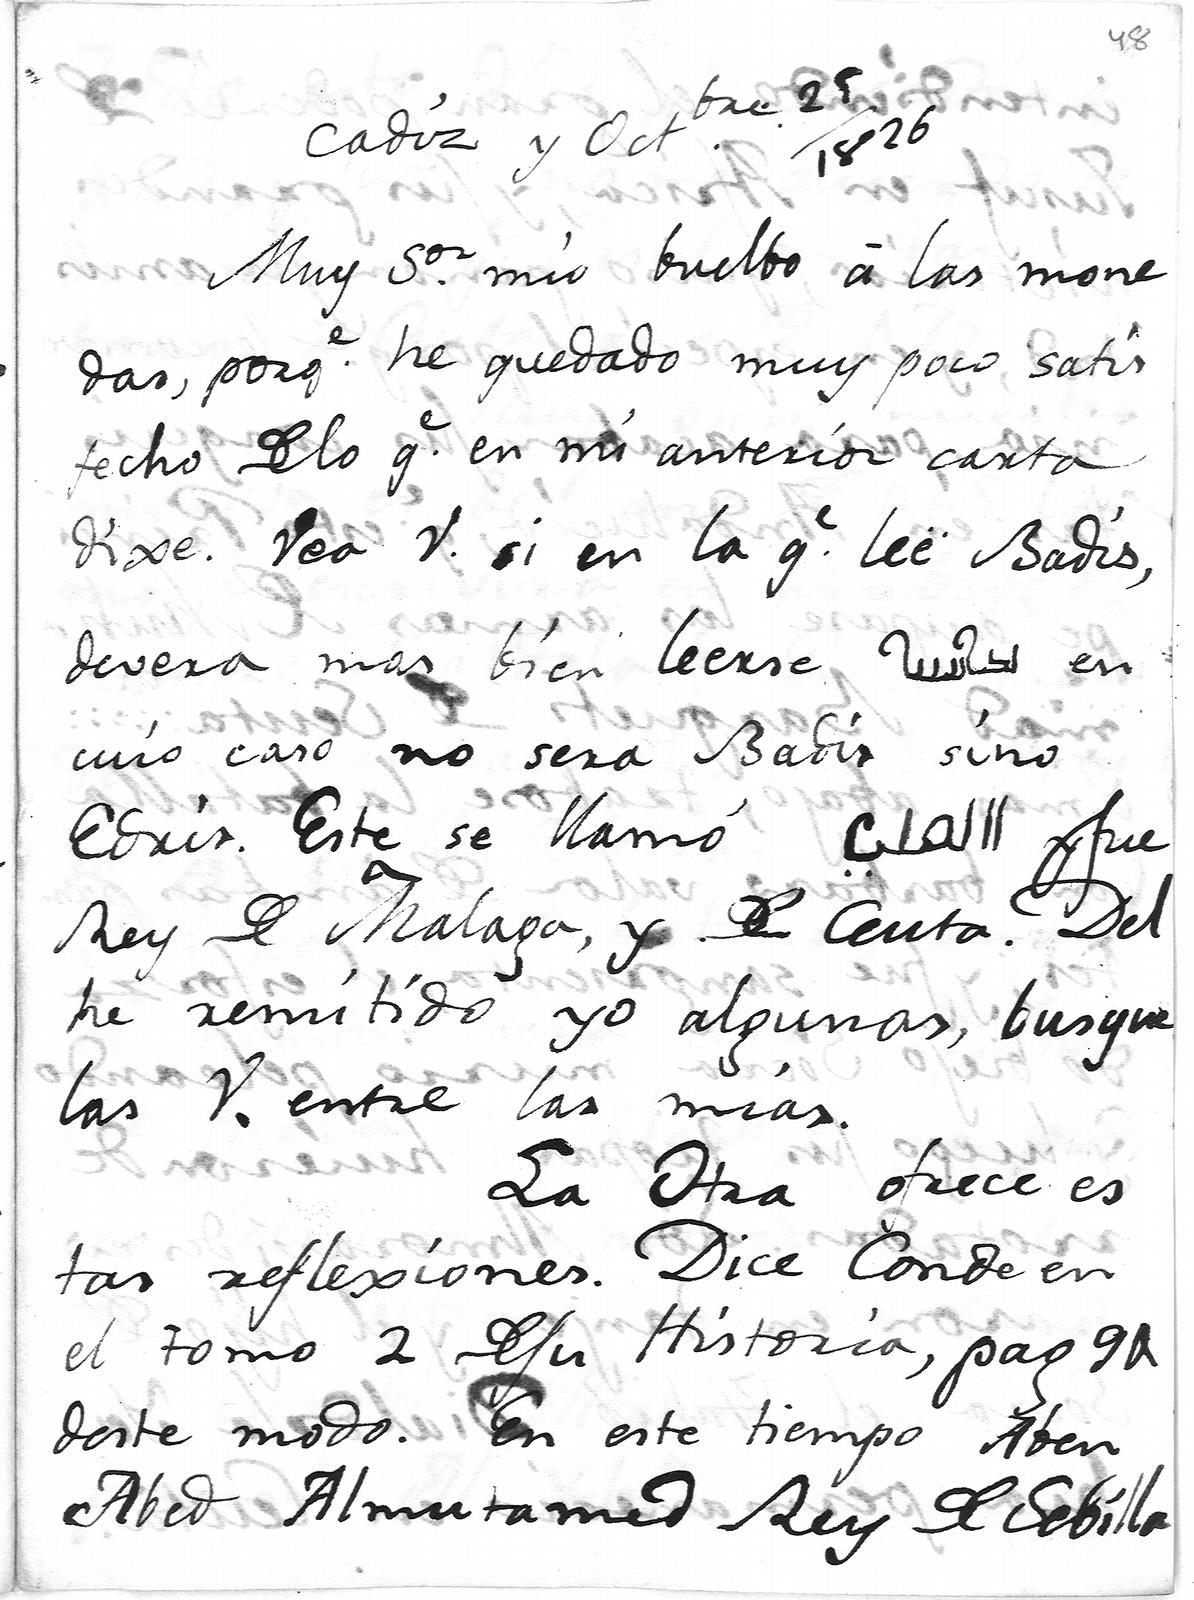 48
Cadiz y Oct.bre 25
1826
Muy S.or mio buelbo à las mone
das, porq.e he quedado muy poco satis
fecho de lo q.e en mi anterior carta
dixe. Vea V. si en la q.e leë Badis,
devera mas bien leerse en
cuio caso no sera Badis sino
Edris. Este se llamó العالي y fue
Rey de Malaga, y de Ceuta. Del
he remitido yo algunas, busque
las V. entre las mias.
La Otra ofrece es
tas reflexiones. Dice Conde en
el tomo 2 de su Historia, pag
deste modo. En este tiempo Aben
Abed Almutamed Rey de Sebilla